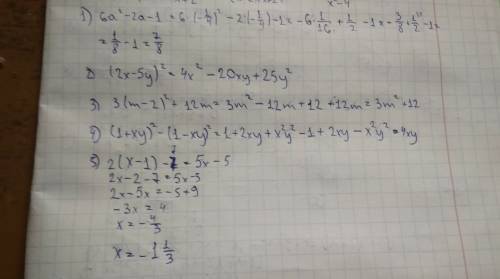 x-4
1) 6a²-2a-1=6·(-1/4)²-2·(-1/4)-1=6·1/16+1/2-1=3/8+1/2-1=
=1/8-1=7/8
2) (2x-5y)²=4x²-20xy+25y²
3) 3(m-2)²+12m=3m²-12m+12+12m=3m²+12
4) (1+xy)²-(1-xy)²=1+2xy+x²y²-1+2xy-x²y²=4xy
5) 2(x-1)-7=5x-5
2x-2-7=5x-5
2x-5x=-5+9
-3x=4
x=-4/3
x=-1 1/3